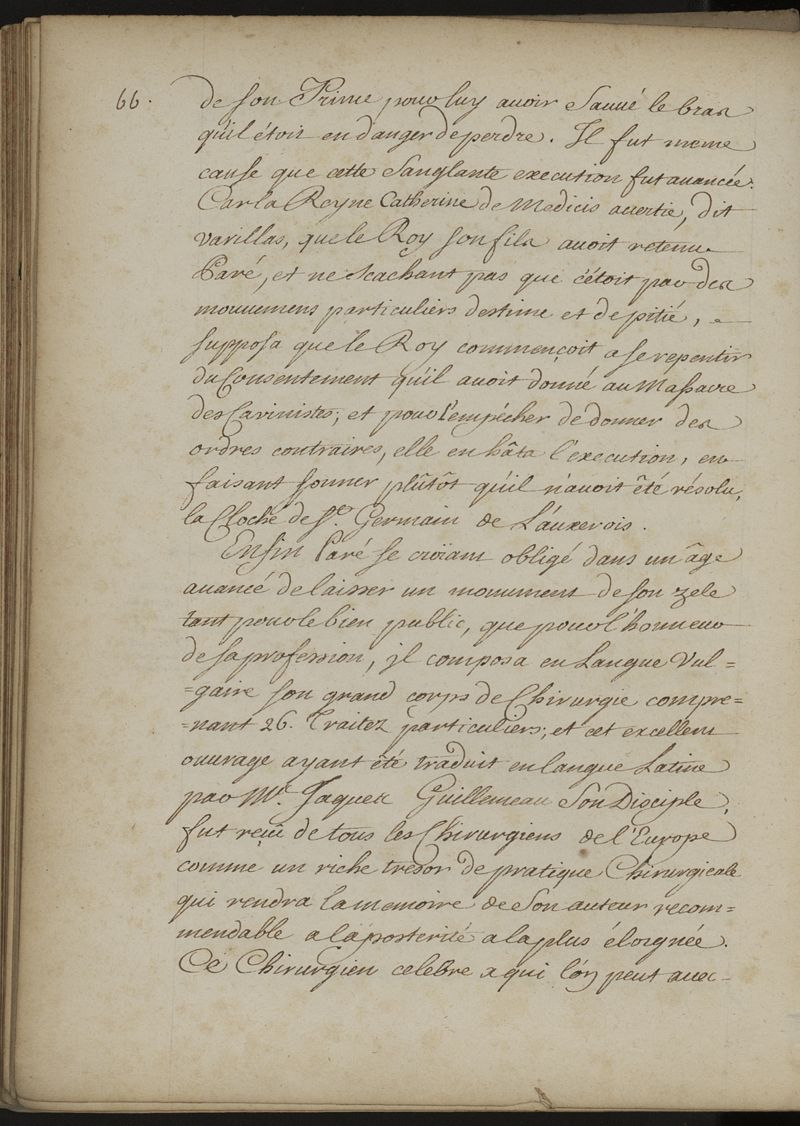 66. de son Prince pour luy avoir Sauvé le bras
qu'il étoit en danger de perdre. Il fut meme
cause que cette Sanglante execution fut avancée.
Car la Reyne Catherine de Medicis avertie, dit
Varillas, que le Roy son fils avoit retenu
Paré, et ne Scachant pas que c'étoit par des
mouvemens particuliers destime et de pitié,
supposa que le Roy commençoit a se repentir
du Consentement qu'il avoit donné au Massacre
des Cavinistes; et pour l'empécher de donner des
ordres contraires, elle en hâta l'execution, en
faisant sonner plûtôt qu'il n'avoit êté résolu,
la Cloche de St. Germain de L'auxerois.
Enfin Paré se croïant obligé dans un âge
avancé de laisser un monument de son zele
tant pour le bien public, que pour l'honneur
de sa profession, il composa en Langue Vul=
=gaire son grand corps de Chirurgie compre=
=nant 26. Traitez particuliers; et cet excellent
ouvrage ayant êté traduit en langue Latine
par Mr. Jaques Guillemeau Son Disciple,
fut reçû de tous les Chirurgiens de l'Europe
comme un riche tresor de pratique Chirurgicale
qui rendra la memoire de Son auteur recom=
mendable a la posterité a la plus éloignée.
Ce Chirurgien celebre a qui l'on peut avec